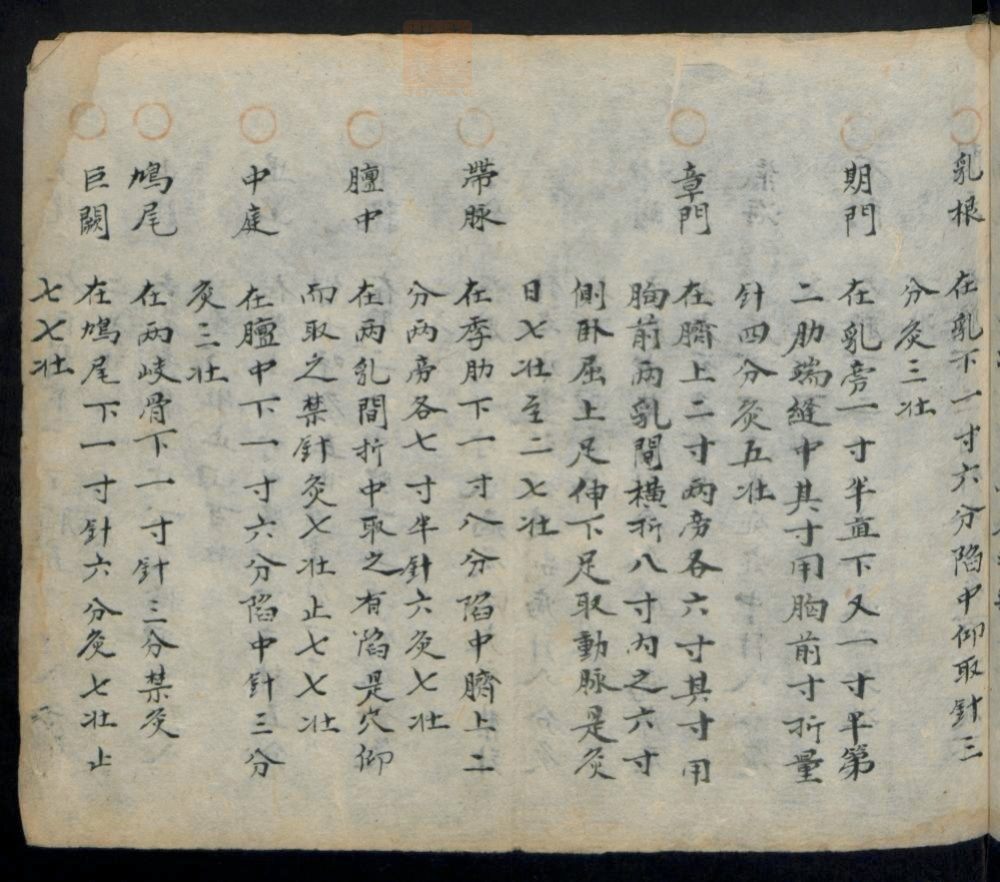 乳根 在乳下一寸六分陷中仰取針三
分灸三壯
期門 在乳旁一寸半直下又一寸半第
二肋端縫中其寸用胸前寸折量
針四分灸五壯
章門 在臍上二寸兩旁各六寸其寸用
胸前兩乳間橫折八寸內之六寸
側卧屈上足伸下足取動脉是灸
日七壯至二七壯
帶脉 在季肋下一寸八分陷中臍上二
分兩旁各七寸半針六灸七壯
膻中 在兩乳間折中取之有陷是穴仰
而取之禁針灸七壯止七七壯
中庭 在膻中下一寸六分陷中針三分
灸三壯
鳩尾 在兩岐骨下一寸針三分禁灸
巨闕 在鳩尾下一寸針六分灸七壯止
七七壯